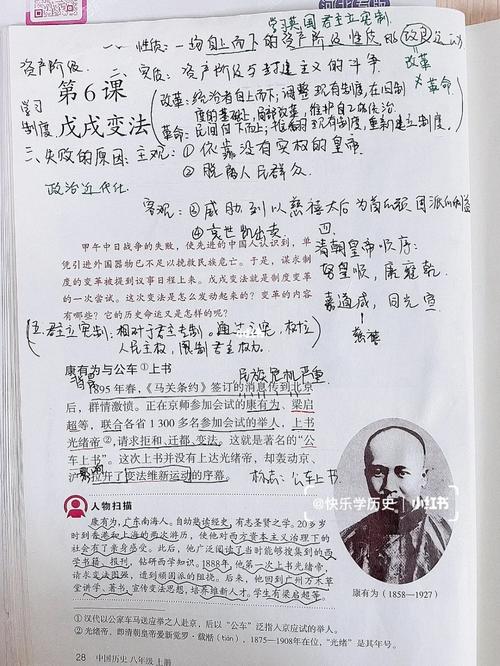 学习英国君主立宪制.
一、性质:一场自上而下的资产阶级性质的改良运动
资产阶级.
二、实质:资产阶级与封建主义的斗争.
改革
×革命
第6课
学习
制度
戊戌变法
(改革:统治者自上而下;调整现有制度,在旧制
度的基础上,局部改革,维护自己的统治.
革命:民间自下而上;推翻现有制度,重新建立制度.)
三、失败的原因:主观:①依靠没有实权的皇帝
②脱离人民群众.
政治近代化
客观:③威胁到以慈禧太后为首的顽固派的利益
④袁世凯出卖
四.
清朝皇帝顺序:
努皇顺,康雍乾.
嘉道咸,同光宣
↓
慈禧
甲午中日战争的失败,使先进的中国人认识到,单
凭引进外国器物已不足以挽救民族危亡。于是,谋求制
度的变革被提到议事日程上来。戊戌变法就是制度变革
的一次尝试。这次变法是怎么发动起来的?变革的内容
有哪些?它的历史命运又是怎样的呢?
(五:君主立宪制:相对于君主专制。通过立宪,
人民主权,限制君主权力.)
康有为与公车①上书
背景
民族危机严重
1895年春,《马关条约》签订的消息传到北京
后,群情激愤。正在京师参加会试的康有为、梁启
超等,联合各省1 300多名参加会试的举人,上书
光绪帝②,请求拒和、迁都、变法。这就是著名的“公
车上书”。这次上书并没有上达光绪帝,却轰动京、
沪,拉开了变法维新运动的序幕。
影响
标志:公车上书
人物扫描
康有为,广东南海人。自幼熟读经史,有志圣贤之学。20多岁
时到香港和上海的两次游历,使他对西方资本主义治理下的
社会有了亲身感受。此后,他广泛阅读了当时能够搜集到的西
学书籍、报刊,钻研西学知识。1888年,他第一次上书光绪帝
请求变法图强,遭到顽固派的阻挠。后来,他回到广州万木草
堂讲学、著书,宣传变法思想,培养维新人才。学生有梁启超等。
@快乐学历史 | 小红书
康有为(1858—1927)
①汉代以公家车马送应举之人赴京,后以“公车”泛指入京应试的举人。
②光绪帝,即清朝皇帝爱新觉罗·载湉(tián),1875—1908年在位,“光绪”是其年号。
28 中国历史 八年级 上册